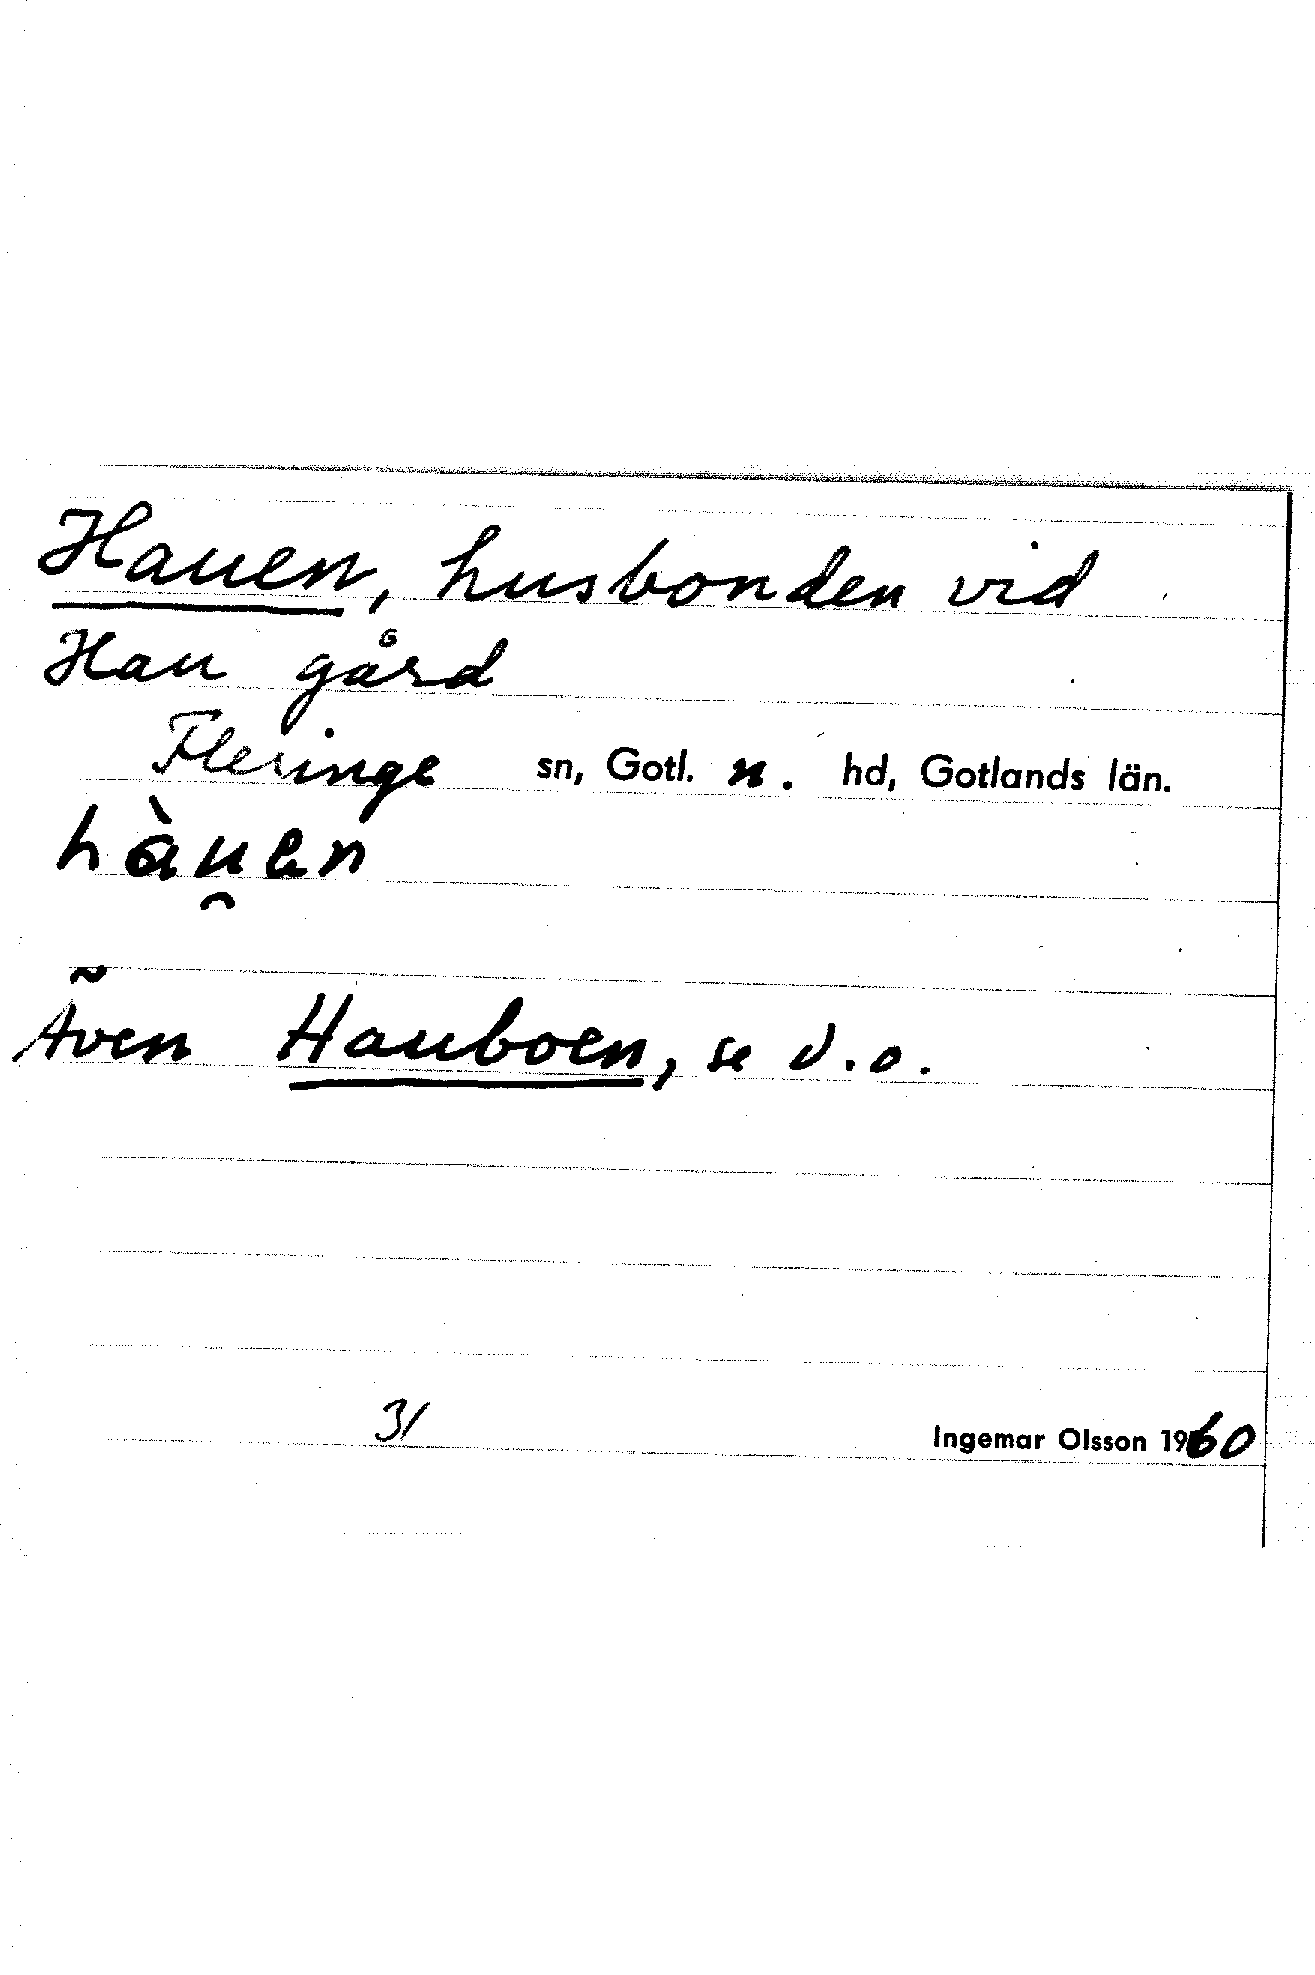 Hauen, husbonden vid
Hau gård
Fleringe sn, Gotl. n. hd, Gotlands län.
hàu̯ən
Även Hauboen, se d.o.
31
Ingemar Olsson 1960